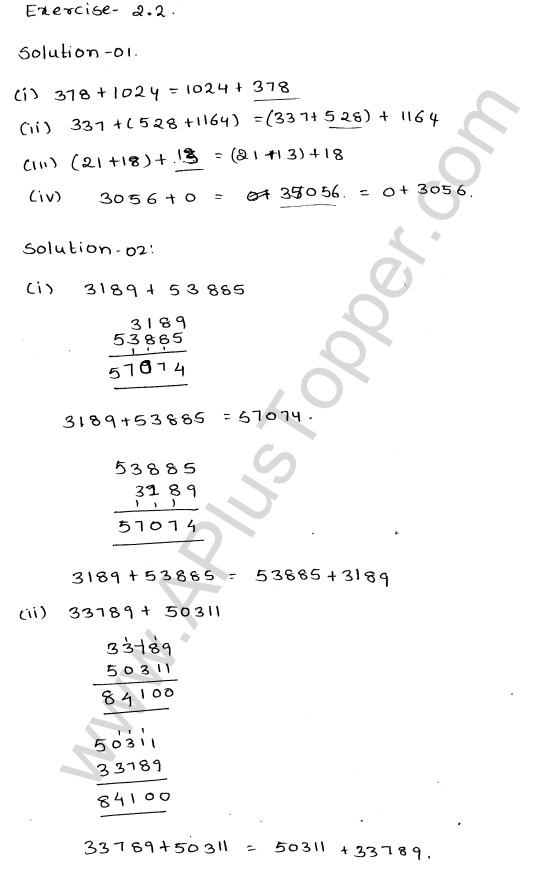 Exercise- 2.2.
Solution-01.
(i) 378 + 1024 = 1024 + 378
(ii) 337 + (528 + 1164) = (337 + 528) + 1164
(iii) (21 + 18) + 13 = (21 + 13) + 18
(iv) 3056 + 0 = 3056. = 0 + 3056.
Solution-02:
(i) 3189 + 53885
3189
53885
1 1 1
57074
3189 + 53885 = 57074.
53885
3189
1 1 1
57074
3189 + 53885 = 53885 + 3189
(ii) 33789 + 50311
1 1 1
33789
50311
84100
1 1 1
50311
33789
84100
33789 + 50311 = 50311 + 33789.
www.APlusTopper.com